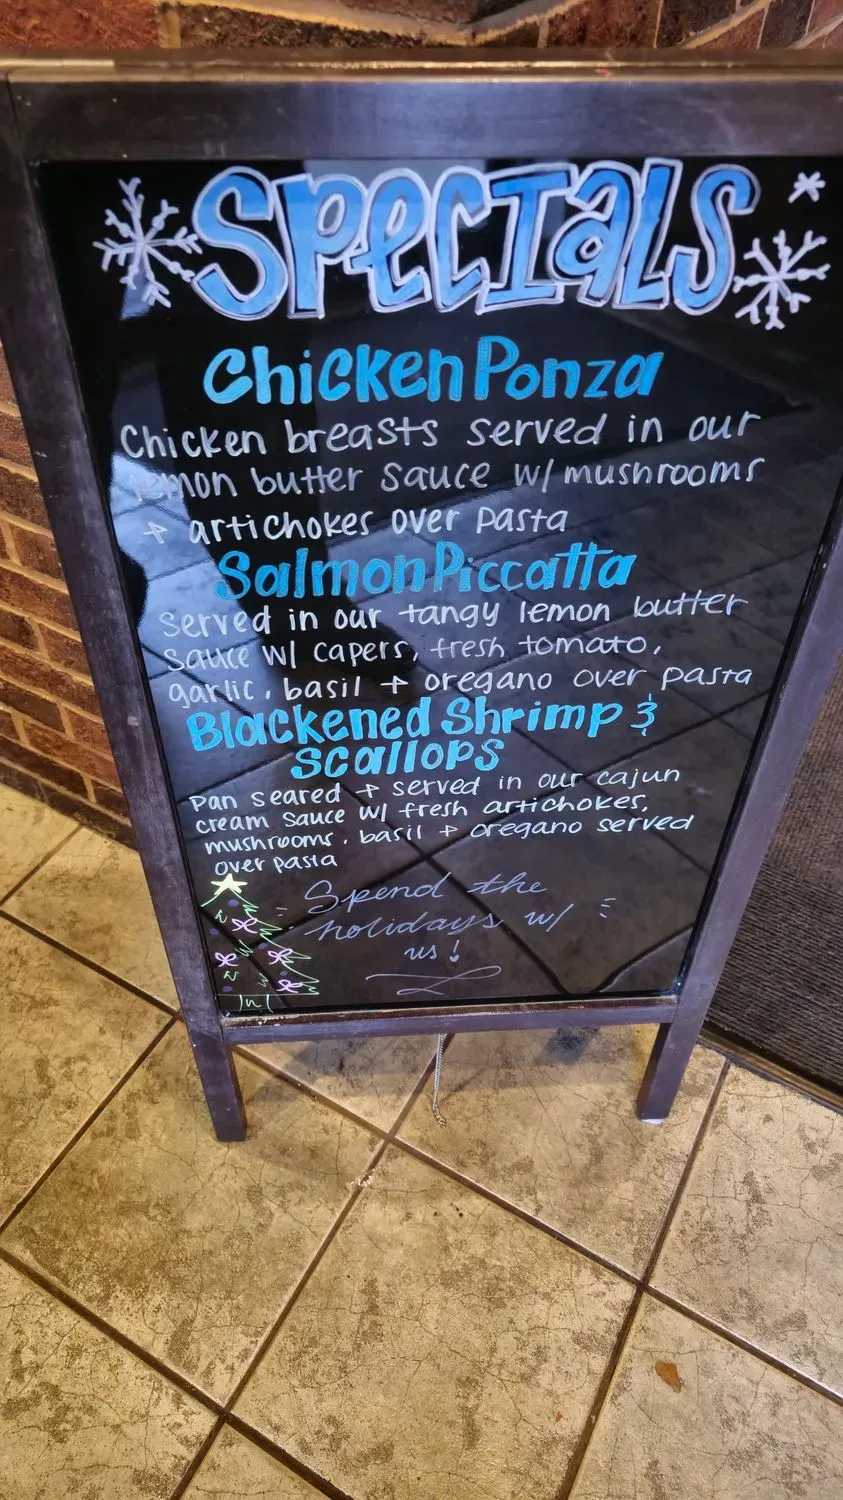 SPeCIaLS
Chicken Ponza
Chicken breasts served in our
lemon butter sauce w/ mushrooms
+ artichokes over pasta
Salmon Piccatta
served in our tangy lemon butter
sauce w/ capers, fresh tomato,
garlic, basil + oregano over pasta
Blackened Shrimp &
scallops
pan seared + served in our cajun
cream sauce w/ fresh artichokes,
mushrooms, basil + oregano served
over pasta
Spend the
holidays w/
us!